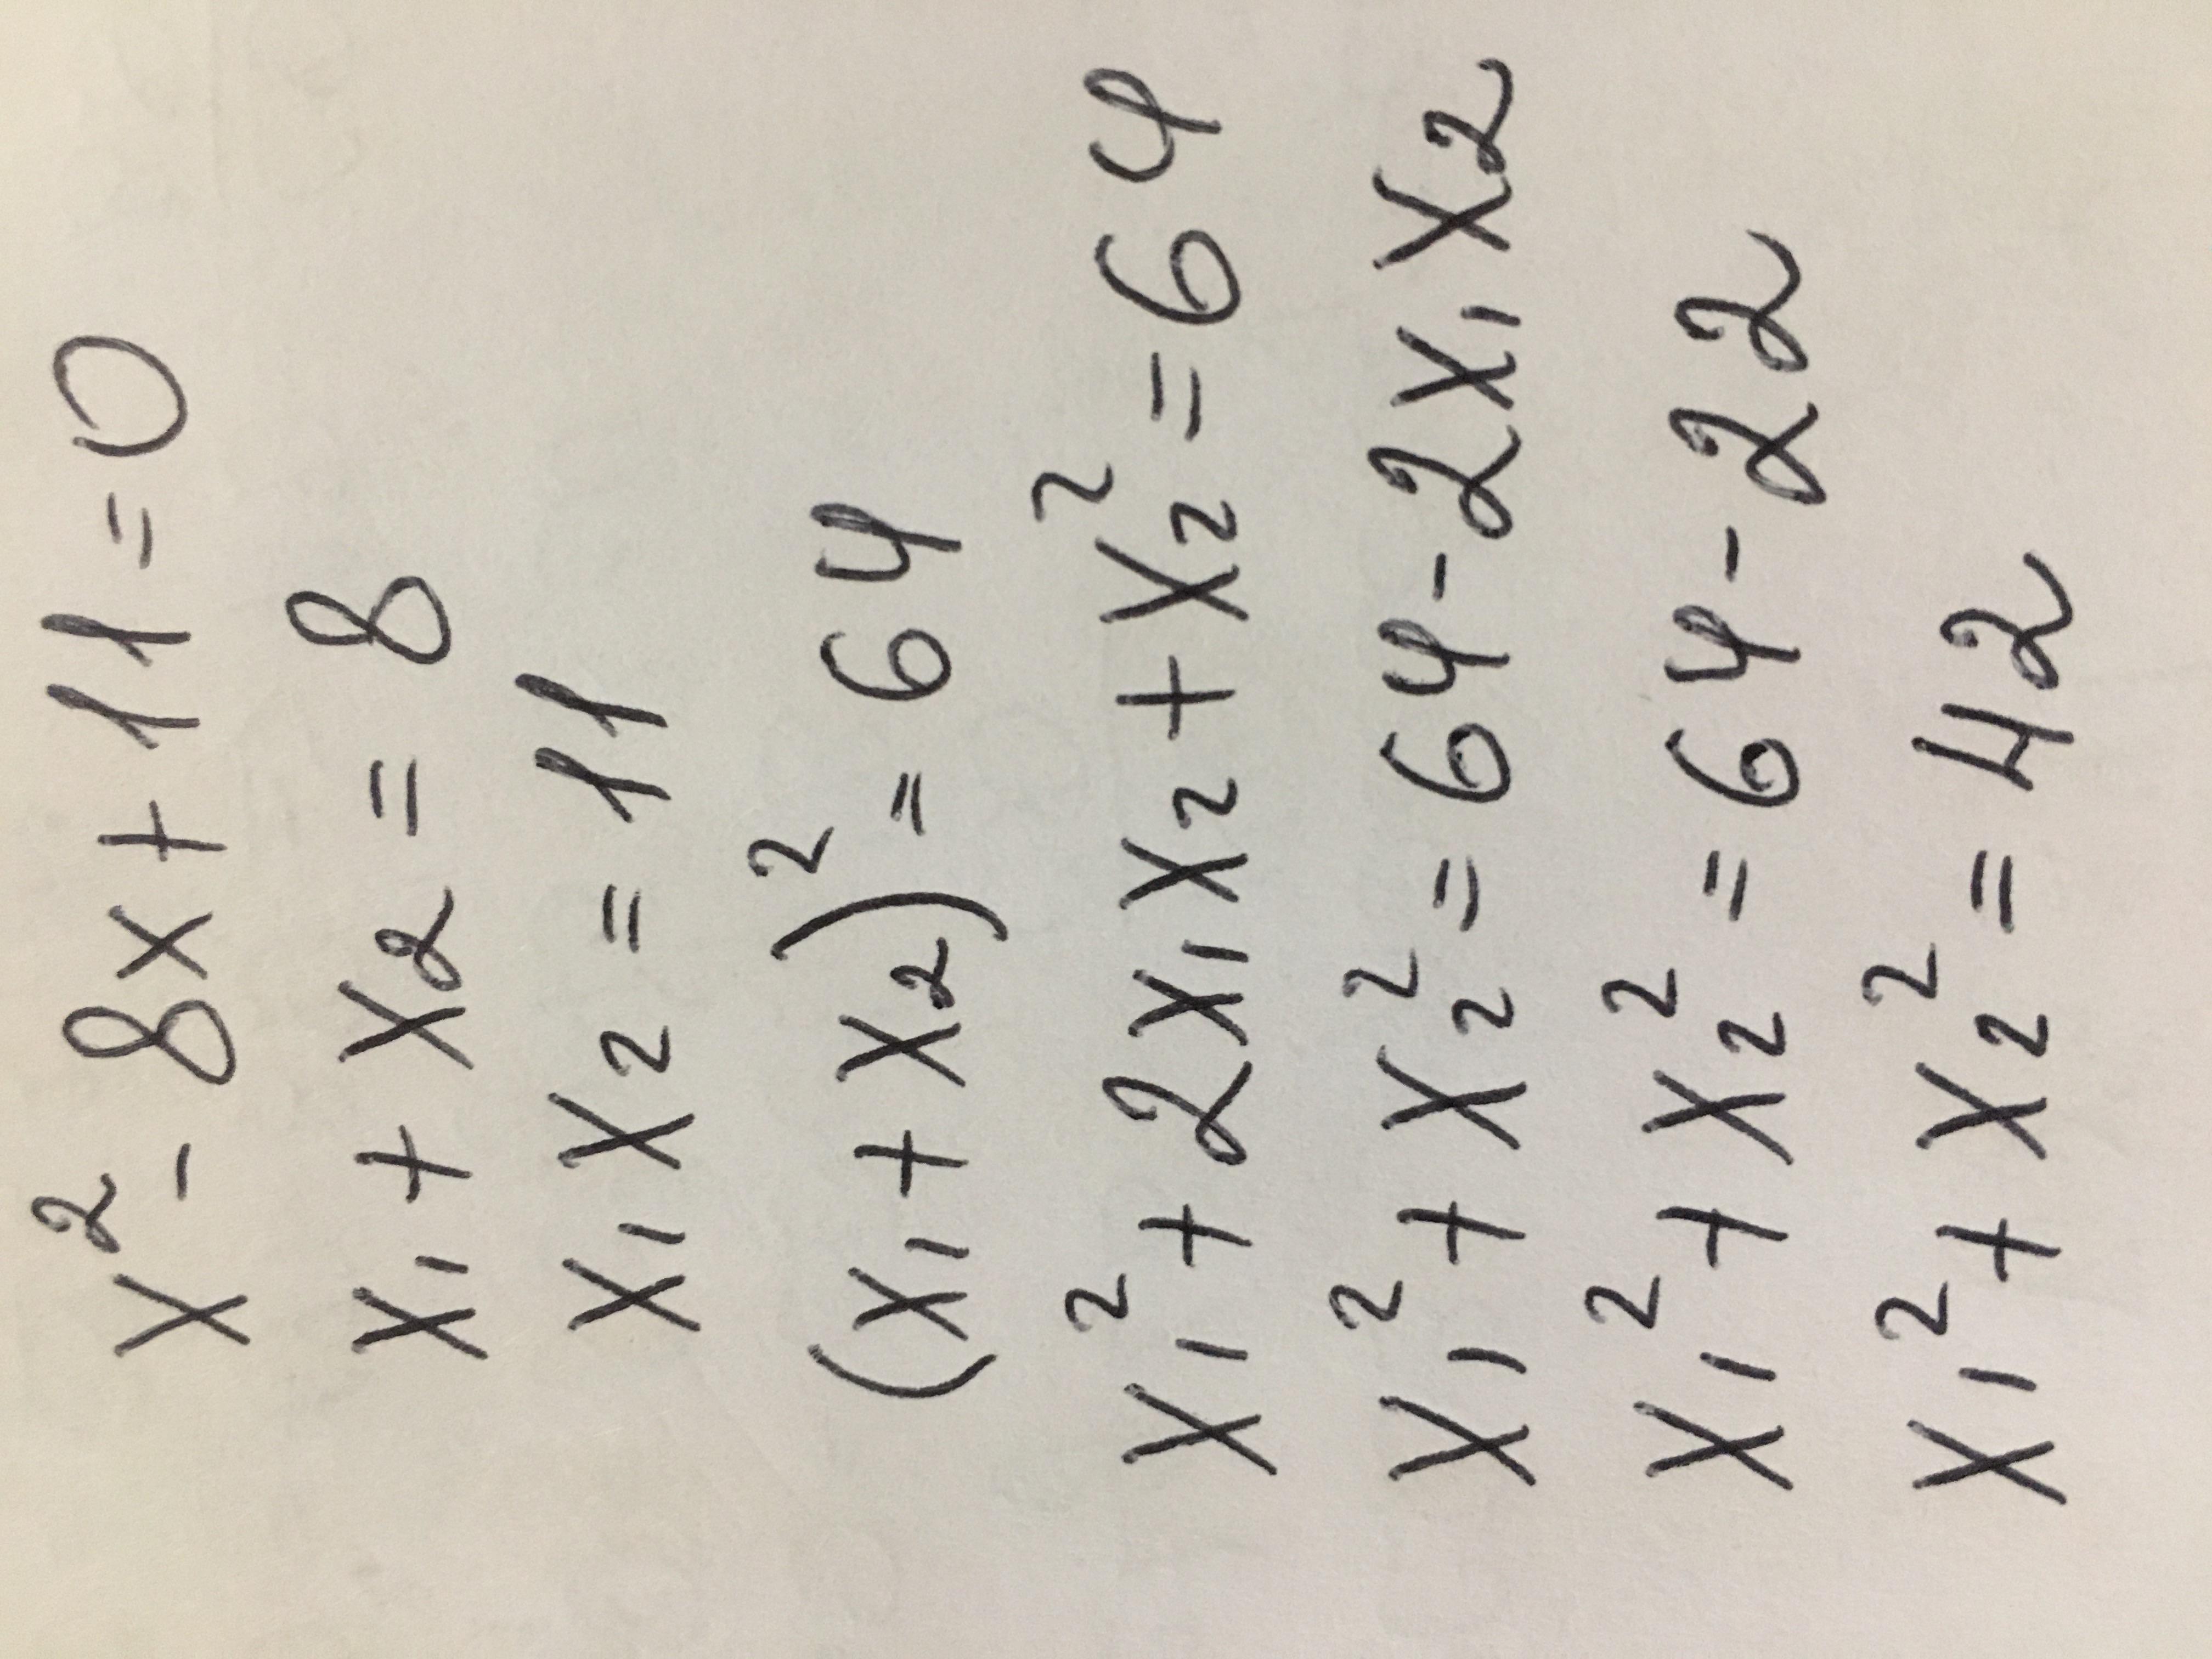 x² - 8x + 11 = 0
x₁ + x₂ = 8
x₁x₂ = 11
(x₁ + x₂)² = 64
x₁² + 2x₁x₂ + x₂² = 64
x₁² + x₂² = 64 - 2x₁x₂
x₁² + x₂² = 64 - 22
x₁² + x₂² = 42